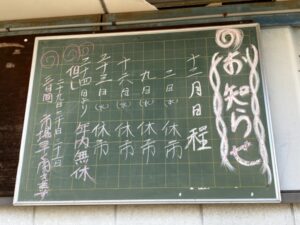 お知らせ
十二月日程
二日(水)休市
九日(水)休市
十六日(水)休市
二十三日(水)休市
二十四日より年内無休
但し
二十九日、三十日、三十一日
三日間 市場